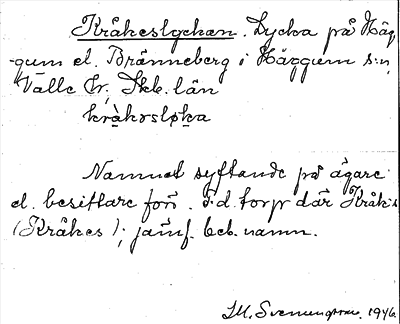 Kråkeslyckan. Lycka på Häg-
gum el. Bränneberg i Häggum s:n,
Valle hr, Skb. län
kråkəsløka
Namnet syftande på ägare
el. besittare förr. F.d. torp där Kråk-
(Kråkes); jämf. beb.namn.
1946.